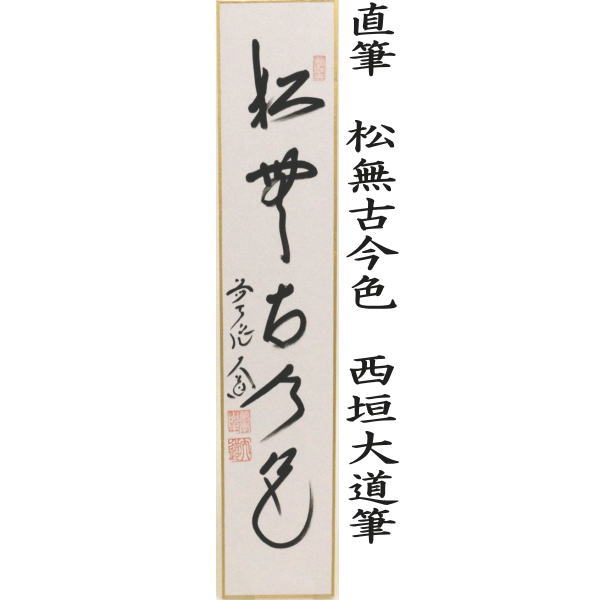 直筆 松無古今色 西垣大道筆
松無古今色